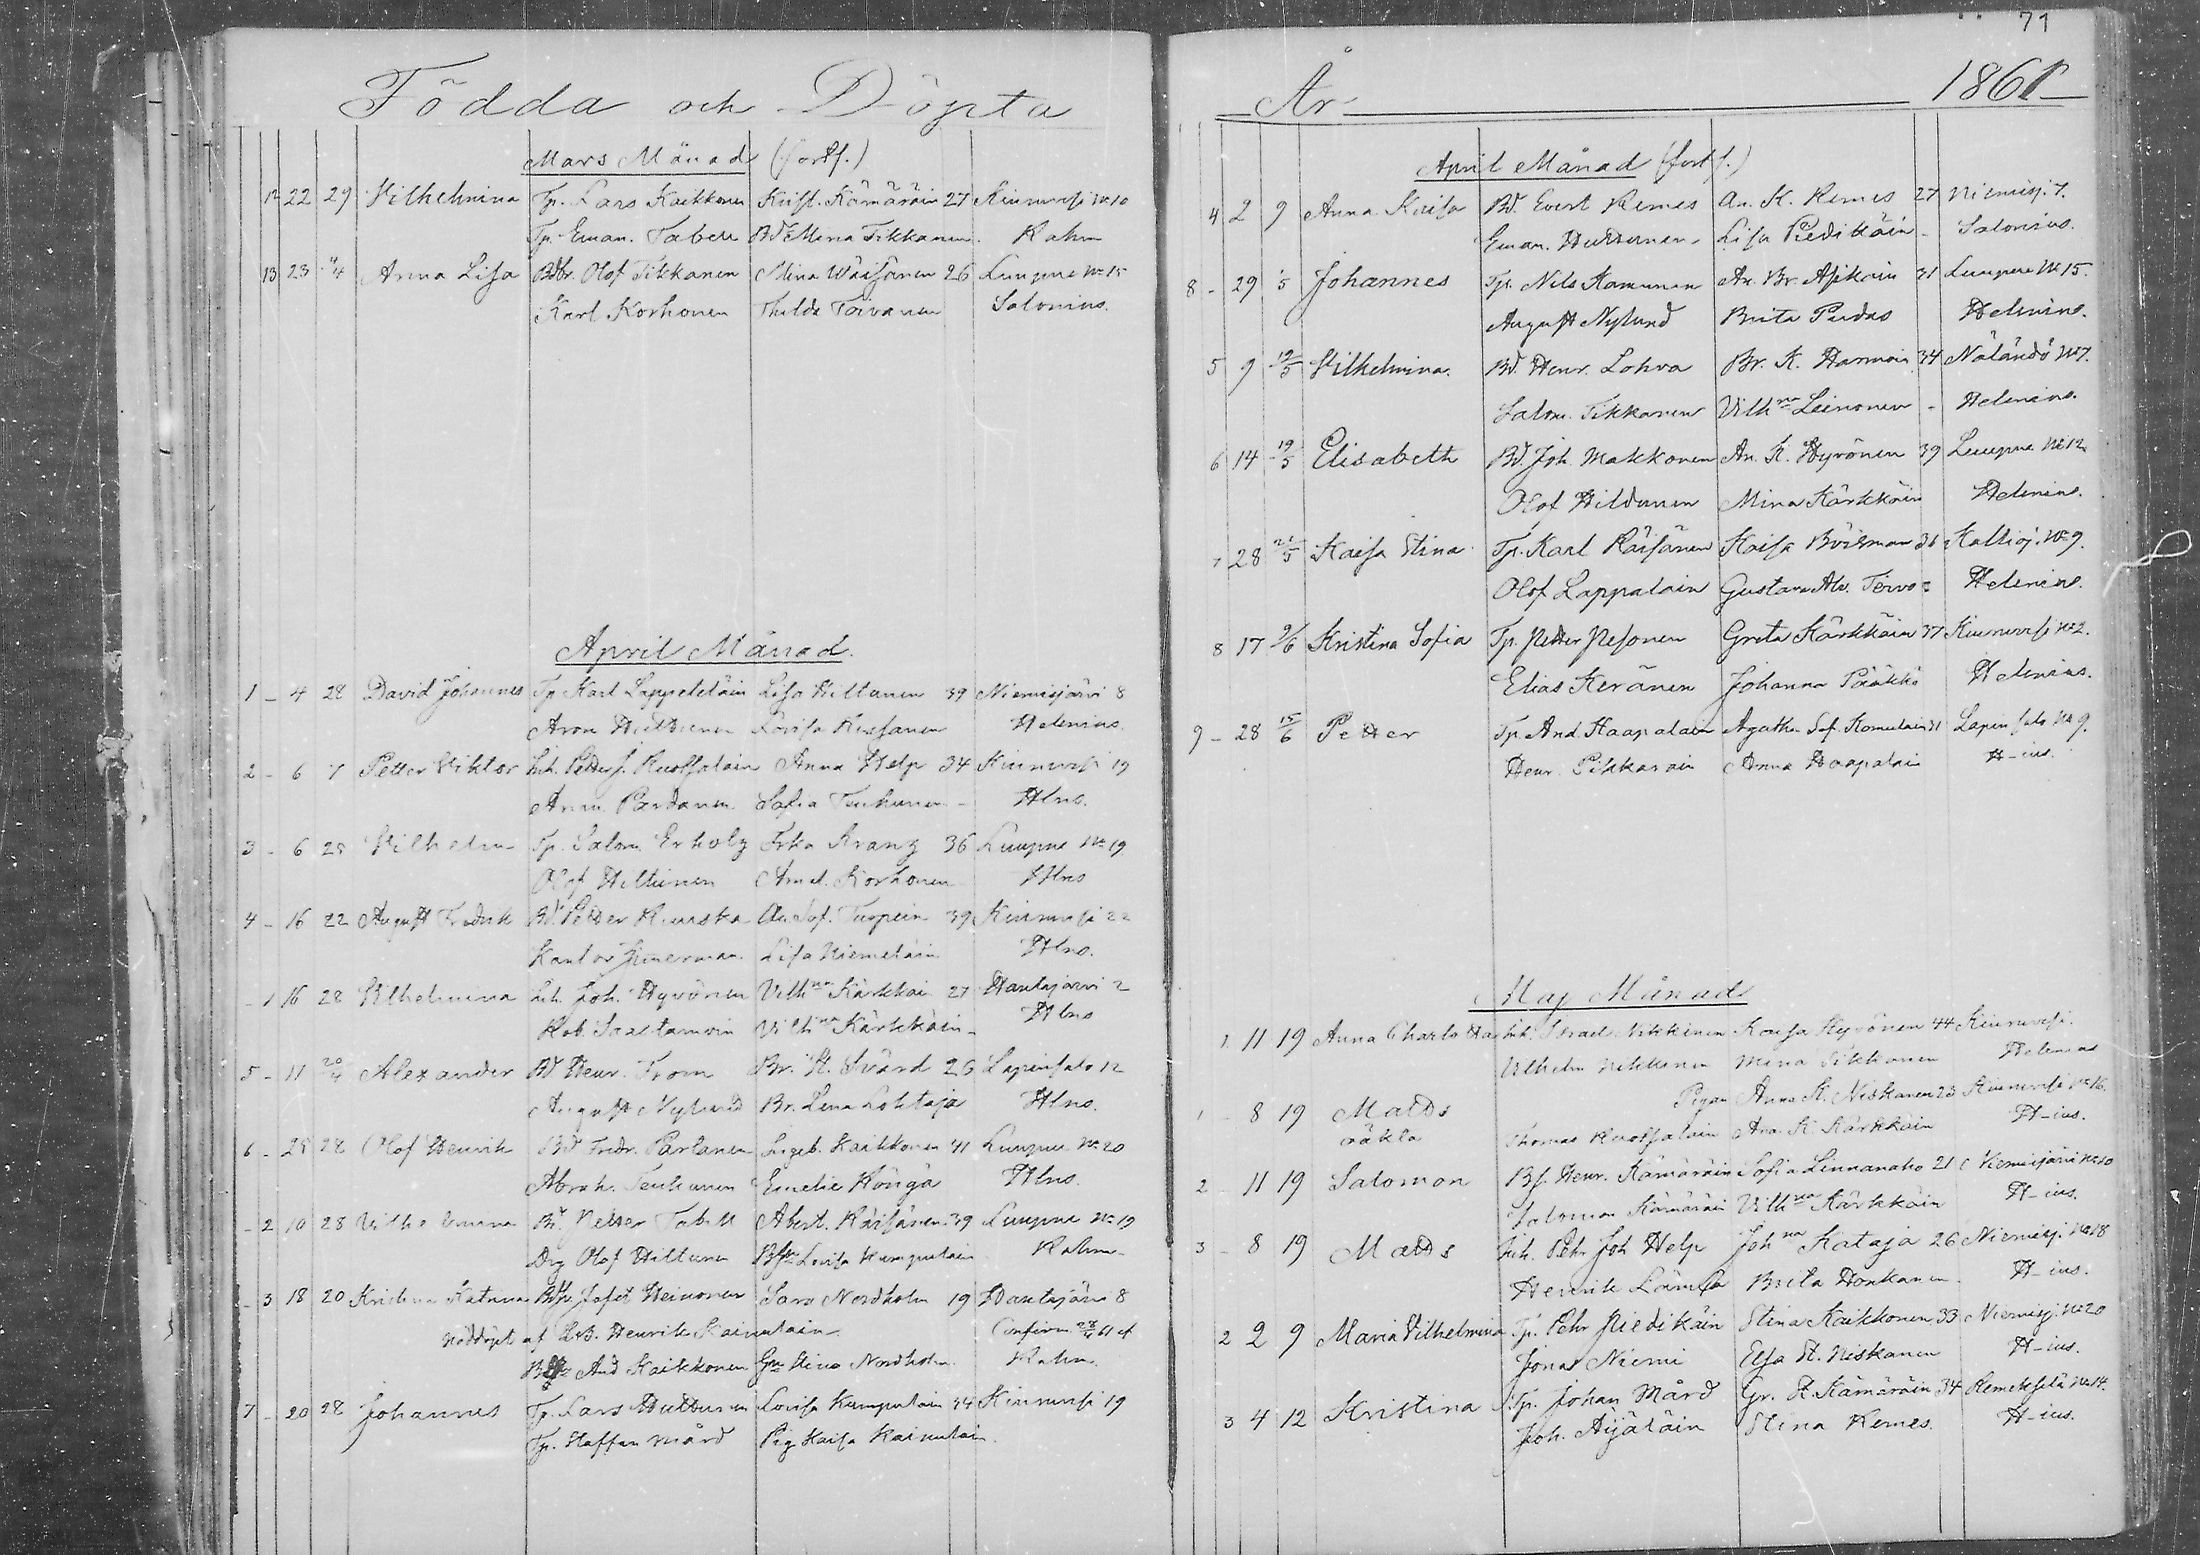 Födda och Döpta
Mars Månad (fortf.)
12 22 29 Vilhelmina Tp. Lars Kaikkonen Krist. Kämäräin 27 Kiuruvesi No 10
Tp. Eman. Tabell Mina Tikkanen Rahm
13 23 Anna Lisa Olof Tikkanen Stina Wäisänen 26 Luupue No 15
Karl Korhonen Thilda Toivanen Salonius.
April Månad.
1 - 4 28 David Johannes Tp Karl Lappeteläin Lisa Hiltunen 39 Niemisjärvi 8
Aron Huttunen Lovisa Helenius.
2 - 6 7 Petter Viktor Inh. Petter J. Ruotsalain Anna Help 34 Kiuruvesi 19
Partanen Sofia Tenhunen - Hlns.
3 - 6 28 Vilhelm Tp. Salom. Erholz Frka Kranz 36 Luupue No 19
Olof Hiltunen Amd. Korhonen Hlns
4 - 16 22 August Fredrik Bd Petter An. Sof. 39 Kiuruvesi 22
Kantor Lisa Niemeläin Hlns.
- 1 16 28 Vilhelmina Inh. Joh. Hyvönen Vilhna Kärkkäi 27 Hautajärvi 2
Rob. Vilhna Kärkkäin - Hlns
5 - 11 20/4 Alexander Bd Henr. From Br. K. Svärd 26 Lapinsalo 12
August Nylund Br. Lena Lohtaja Hlns.
6 - 25 28 Olof Henrik Bd Fredr. Partanen Ingeb. Kaikkonen 41 Luupue No 20
Abrah. Tenhunen Emelie Köngä Hlns.
- 2 10 28 Vilhelmina Bd. Petter Tabell Abert. Räisänen 39 Luupue No 19
Drg Olof Hiltunen Lovisa Kumpulain Rahm -
- 3 18 20 Kristina Katrina Josef Heinonen Sara Nordholm 19 Hautajärvi 8
nöddöpt af Henrik Kainulain Confirm 28/4 61 af
And Kaikkonen Stina Nordholm Rahm.
7 - 20 28 Johannes Tp. Lars Huttunen Lovisa Kumpulain 44 Kiuruvesi 19
Tp. Staffan Mård Pig Kaisa Kainulain.
71
År 1861
April Månad (fortf.)
4 2 9 Anna Kaisa Bd. Evert Remes An. K. Remes 27 Niemisj. 7.
Eman. Huttunen - Lisa Piedikäin - Salonius.
8 - 29 5 Johannes Tp. Nils Kamunen An. Br. Asikain 31 Luupue No 15.
August Nylund Brita Pudas Helenius.
5 9 19/5 Vilhelmina. Bd. Henr. Lohva Br. K. Harmoin 34 Näländö No 7.
Salom. Tikkanen Vilhna Leinonen - Helenius.
6 14 19/5 Elisabeth Bd. Joh. Makkonen An. K. Hyvönen 39 Luupue No 12
Olof Hildunen Mina Kärkkäin Helenius.
7 28 21/5 Kaisa Stina Tp. Karl Räisänen Kaisa 36 Kallioj. No 9.
Olof Lappalain Gustava Tervo Helenius.
8 17 9/6 Kristina Sofia Tp. Petter Pesonen Greta Kärkkäin 37 Kiuruvesi No 2.
Elias Keränen Johanna Pääkkö Helenius.
9 - 28 15/6 Petter Tp. And. Haapalain Agatha Sof. Komulain 31 Lapinsalo No 9.
Henr. Pikkarain Anna Haapalain H-ius.
Maj Månad
1. 11 19 Anna Charlotta Inh. Israel Nikkinen Kaisa Hyvönen 44 Kiuruvesi.
Vilhelm Nikkinen Mina Tikkanen Helenius
1 - 8 19 Matts Pigan Anna K. Niskanen 23 Kiuruvesi No 16.
oäkta Thomas Ruotsalain Ana. K. Kärkkäin H-ius.
2 - 11 19 Salomon Bs. Henr. Kämäräin Sofia Linnanaho 21 Niemisjärvi No 10
Salomon Kämäräin Vilhna Kärkkäin H-ius.
3 - 8 19 Matts Inh. Pehr Joh Help Johna Kataja 26 Niemisj. No 18
Henrik Lämsä Brita Honkanen H-ius.
2 2 9 Maria Vilhelmina Tp. Pehr Piedikäin Stina Kaikkonen 33 Niemisj. No 20
Jonas Niemi Elsa K. Niskanen H-ius.
3 4 12 Kristina Tp. Johan Mård Gr. K. Kämäräin 34 Remeksela No 14.
Joh. Äijäläin Stina Remes. H-ius.